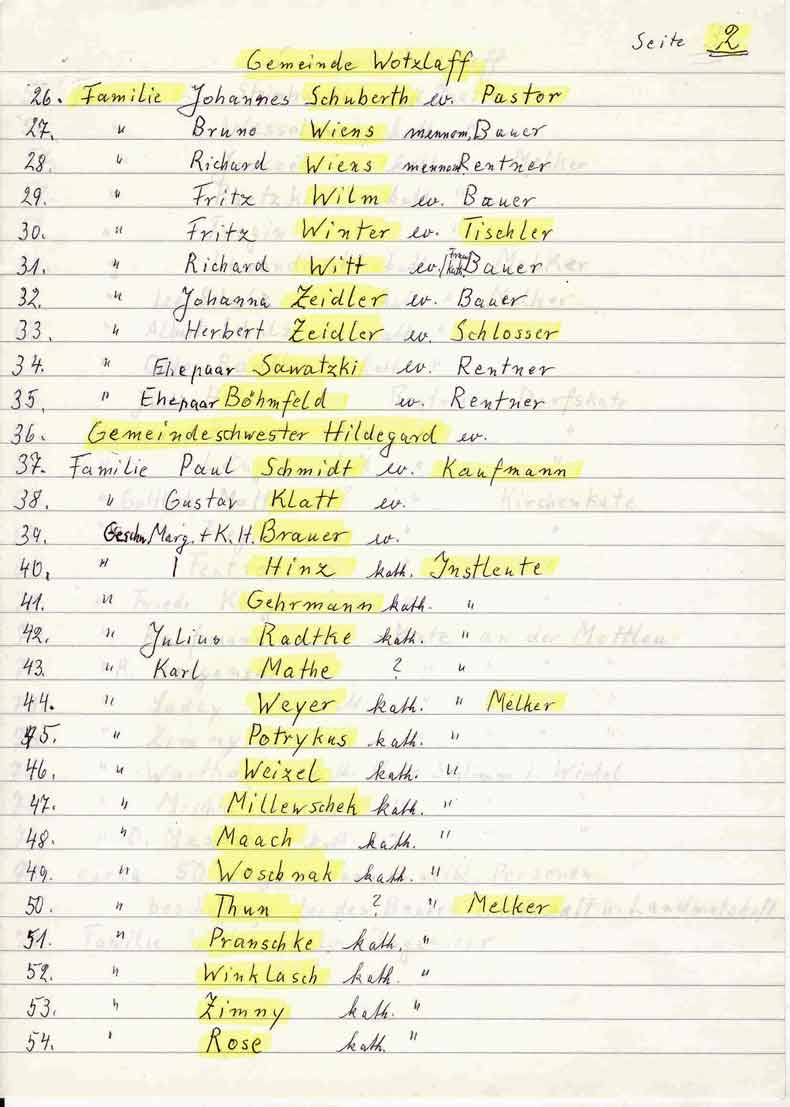 Seite 2
Gemeinde Wotzlaff
26. Familie Johannes Schuberth ev. Pastor
27. " Bruno Wiens mennon. Bauer
28. " Richard Wiens mennon Rentner
29. " Fritz Wilm ev. Bauer
30. " Fritz Winter ev. Tischler
31. " Richard Witt ev. / Frau kath. Bauer
32. " Johanna Zeidler ev. Bauer
33. " Herbert Zeidler ev. Schlosser
34. " Ehepaar Sawatzki ev. Rentner
35. " Ehepaar Böhmfeld ev. Rentner
36. Gemeindeschwester Hildegard ev.
37. Familie Paul Schmidt ev. Kaufmann
38. " Gustav Klatt ev.
39. Geschw. Marg. + K. H. Brauer ev.
40. " Hinz kath. Instleute
41. " Gehrmann kath. "
42. " Julius Radtke kath. "
43. " Karl Mathe ? "
44. " Weyer kath. " Melker
45. " Potrykus kath. "
46. " Weizel kath. "
47. " Millewschek kath. "
48. " Maach kath. "
49. " Woschnak kath. "
50. " Thun ? " Melker
51. " Pranschke kath. "
52. " Winklasch kath. "
53. " Zimny kath. "
54. " Rose kath. "